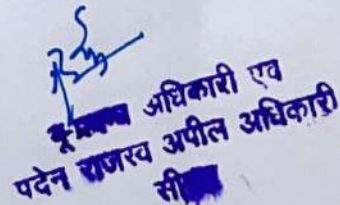 अधिकारी एवं
पदेन राजस्व अपील अधिकारी